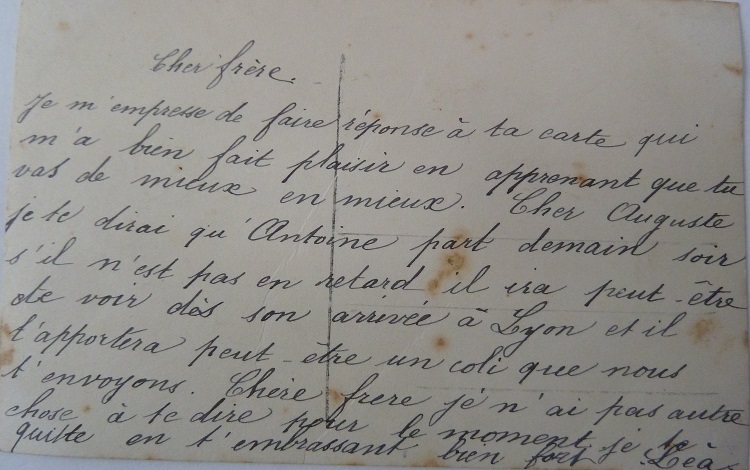 Cher frère.
Je m'empresse de faire réponse à ta carte qui
m'a bien fait plaisir en apprenant que tu
vas de mieux en mieux. Cher Auguste
je te dirai qu'Antoine part demain soir
s'il n'est pas en retard il ira peut-être
te voir dès son arrivée à Lyon et il
t'apportera peut-être un coli que nous
t'envoyons. Chère frere je n'ai pas autre
chose à te dire pour le moment je te
quitte en t'embrassant bien fort Léa